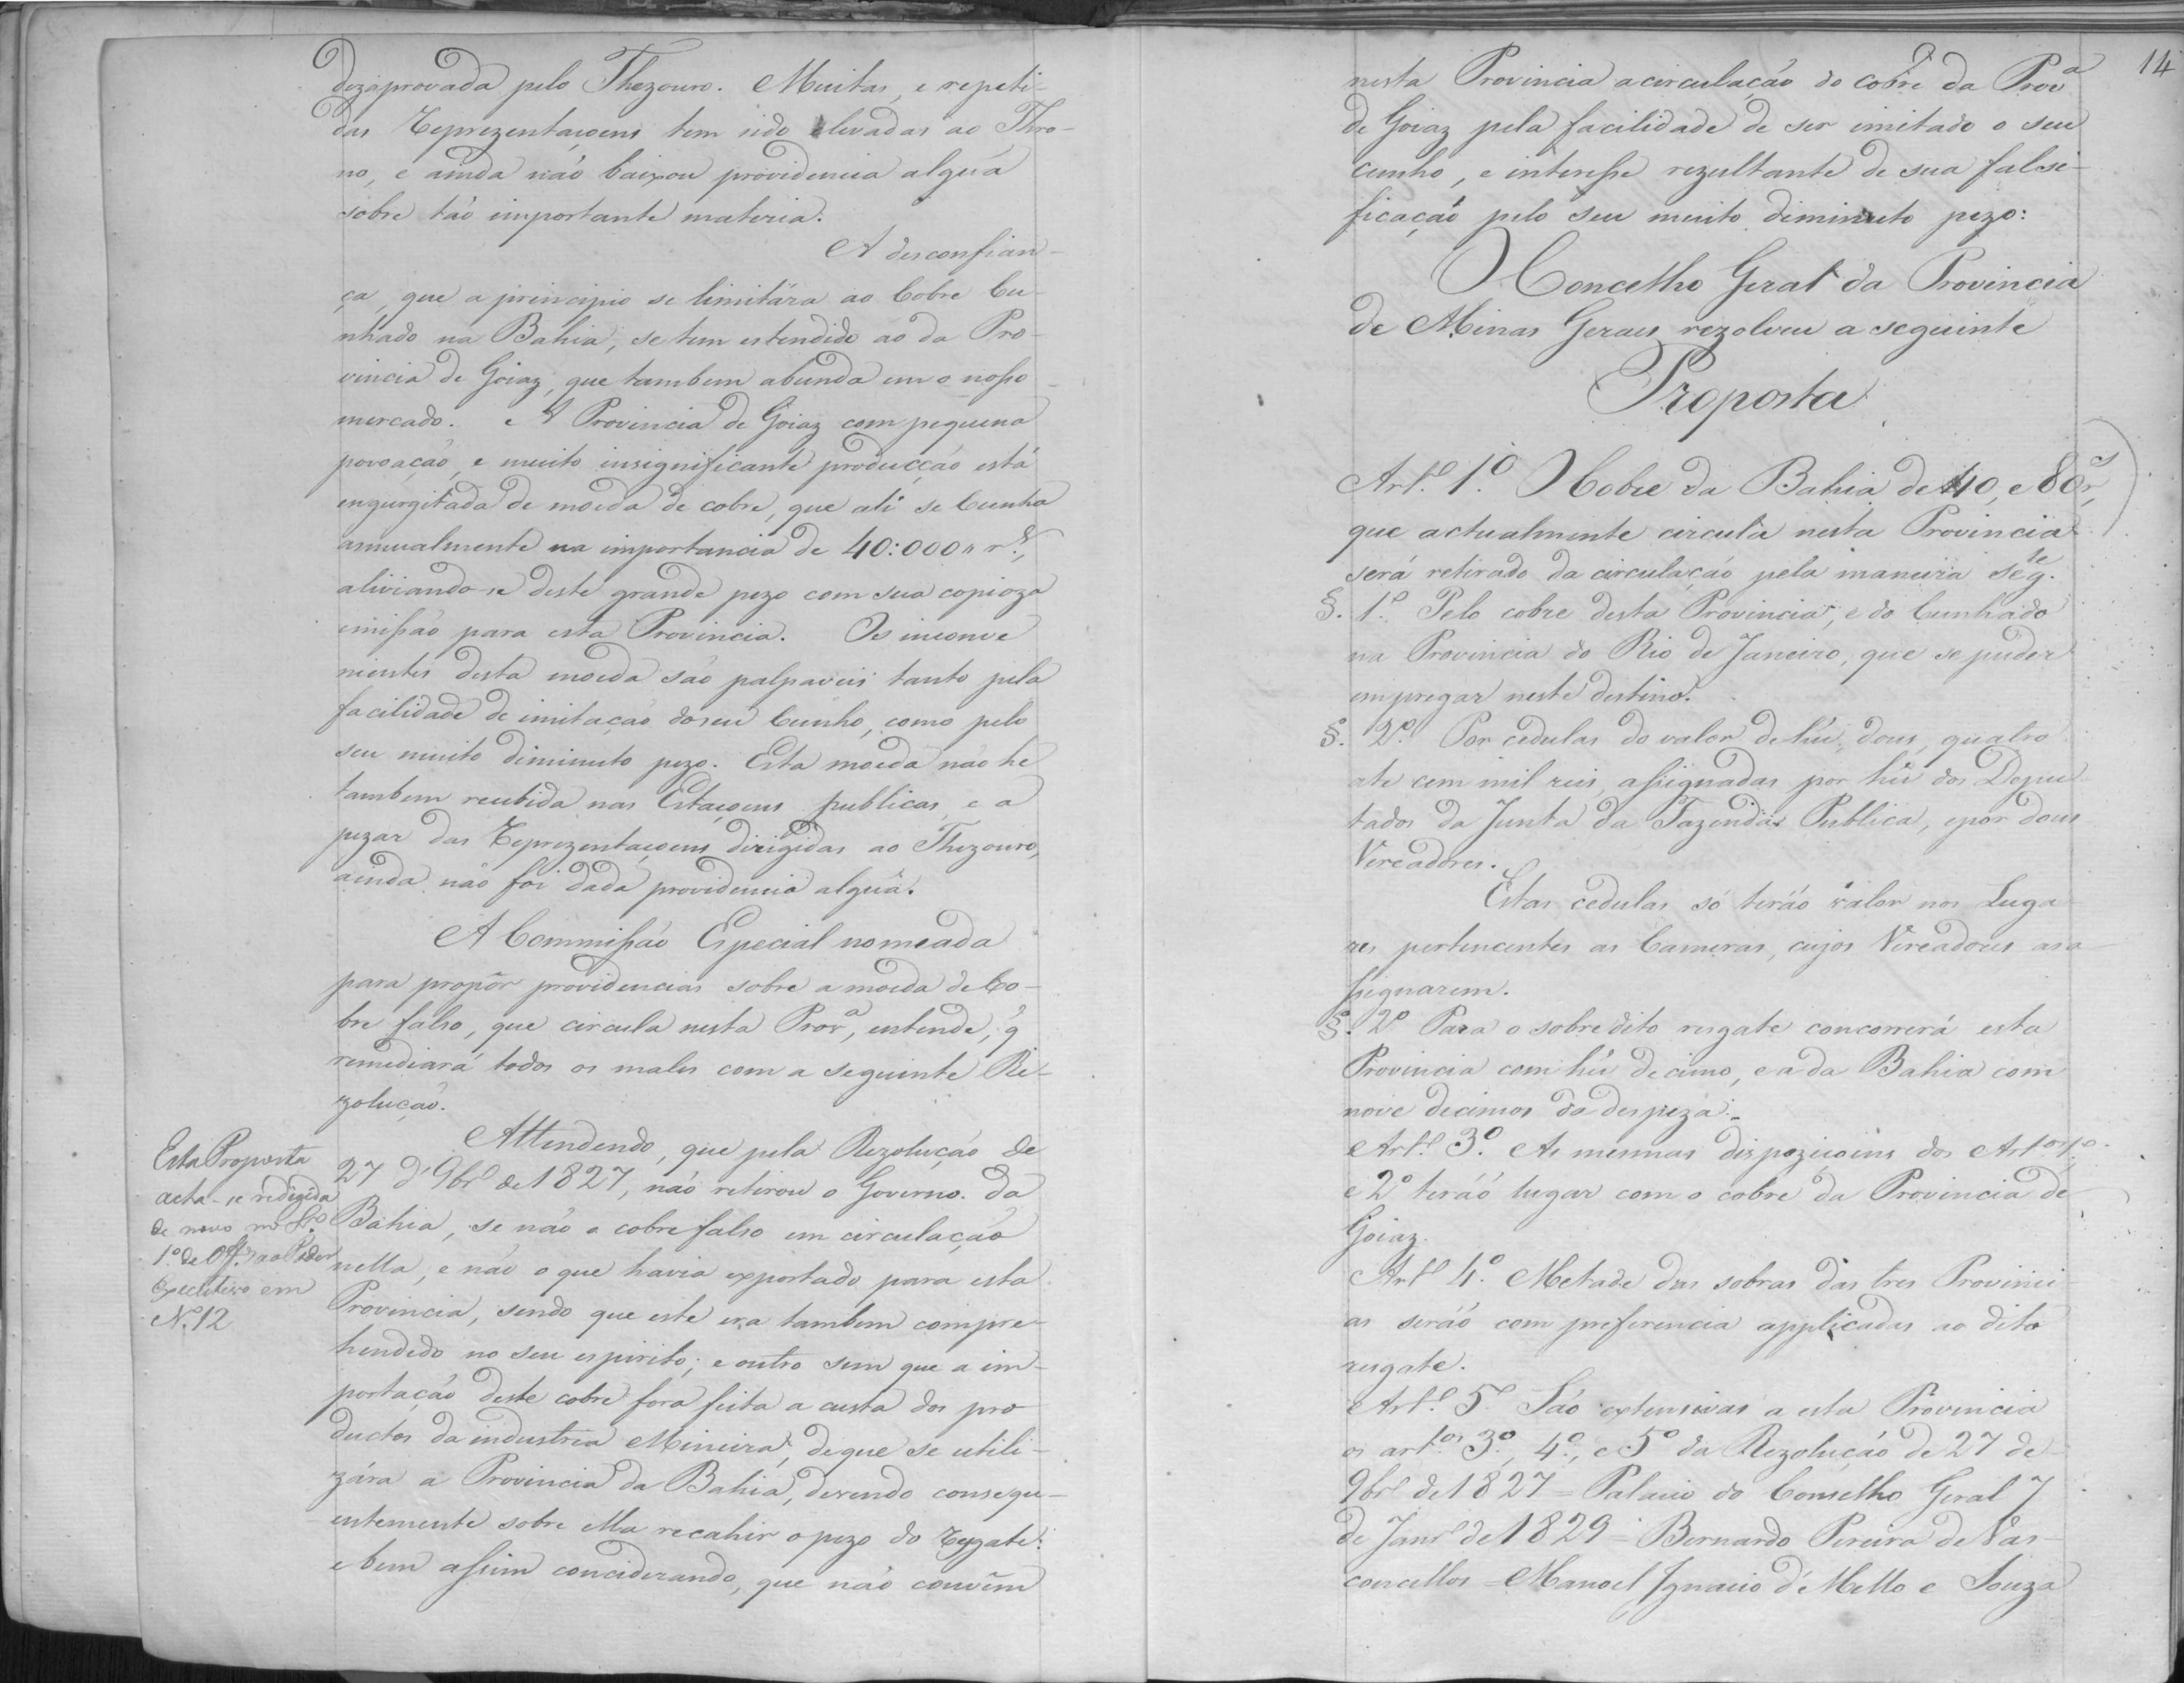 dezaprovada pelo Thezouro. Muitas, e repeti-
das Reprezentaçoens tem sido elevadas ao Thro-
no, e ainda não baixou providencia algũa
sobre tão importante materia.
A desconfian-
ça, que a principio se limitára ao Cobre Cu-
nhado na Bahia, se tem estendido ao da Pro-
vincia de Goiaz, que tambem abunda em o nosso
mercado. A Provincia de Goiaz com pequena
povoação, e muito insignificante producção está
engurgitada de moeda de cobre, que ali se Cunha
annualmente na importancia de 40:000 rs.,
aliviando-se deste grande pezo com sua copioza
emissão para esta Provincia. Os inconve
nientes desta moeda são palpaveis tanto pela
facilidade de imitação do seu Cunho, como pelo
seu muito diminuto pezo. Esta moeda não he
tambem recebida nas Estaçoens publicas, e a
pezar das Reprezentaçoens dirigidas ao Thezouro,
ainda não foi dada providencia algũa.
A Commissão Especial nomeada
para propôr providencias sobre a moeda de Co-
bre falso, que circula nesta Prova, entende, q
remediará todos os males com a seguinte Re-
zolução.
Attendendo, que pela Rezolução de
27 d'9br.o de 1827, não retirou o Governo da
Bahia, se não o cobre falso em circulação
nella, e não o que havia exportado para esta
Provincia, sendo que este era tambem compre-
hendido no seu espirito; e outro sim que a im-
portação deste cobre fora feita a custa dos pro
ductos da industria Mineira, de que se utili-
zára a Provincia da Bahia, devendo consequ-
entemente sobre ella recahir o pezo do Resgate:
e bem assim conciderando, que não convêm
Esta Proposta
acha-se redigida
de novo no L.o
1.o de Off.s ao Poder
Executivo em
N.12
14
nesta Provincia a circulação do cobre da Prova
de Goiaz pela facilidade de ser imitado o seu
cunho, e interesse rezultante de sua falsi-
ficação pelo seu muito diminuto pezo:
O Concelho Geral da Provincia
de Minas Geraes rezolveu a seguinte
Proposta
Art.o 1.o O Cobre da Bahia de 40, e 80 r,
que actualmente circula nesta Provincia
será retirado da circulação pela maneira seg.te
§. 1.o Pelo cobre desta Provincia, e do Cunhado
na Provincia do Rio de Janeiro, que se puder
empregar neste destino.
§. 2.o Por cedulas do valor de hũ, dous, quatro
ate cem mil reis, assignadas por hũ dos Depu
tados da Junta da Fazenda Publica, e por dous
Vereadores.
Estas cedulas só terão valor nos Luga
res pertencentes as Cameras, cujos Vereadores as a
ssignarem.
§. 2.o Para o sobredito resgate concorrerá esta
Provincia com hũ decimo, e a da Bahia com
nove decimos da despeza.
Art.o 3.o As mesmas dispoziçoins dos Art.os 1.o
e 2.o terão lugar com o cobre da Provincia de
Goiaz.
Art.o 4.o Metade das sobras das tres Provinci
as serão com preferencia applicadas ao dito
resgate.
Art.o 5.o São extensivas a esta Provincia
os art.os 3.o, 4.o, e 5.o da Rezolução de 27 de
9br.o de 1827 = Palacio do Conselho Geral 7
de Janr.o de 1829 = Bernardo Pereira de Vas-
concellos = Manoel Ignacio d'Mello e Souza